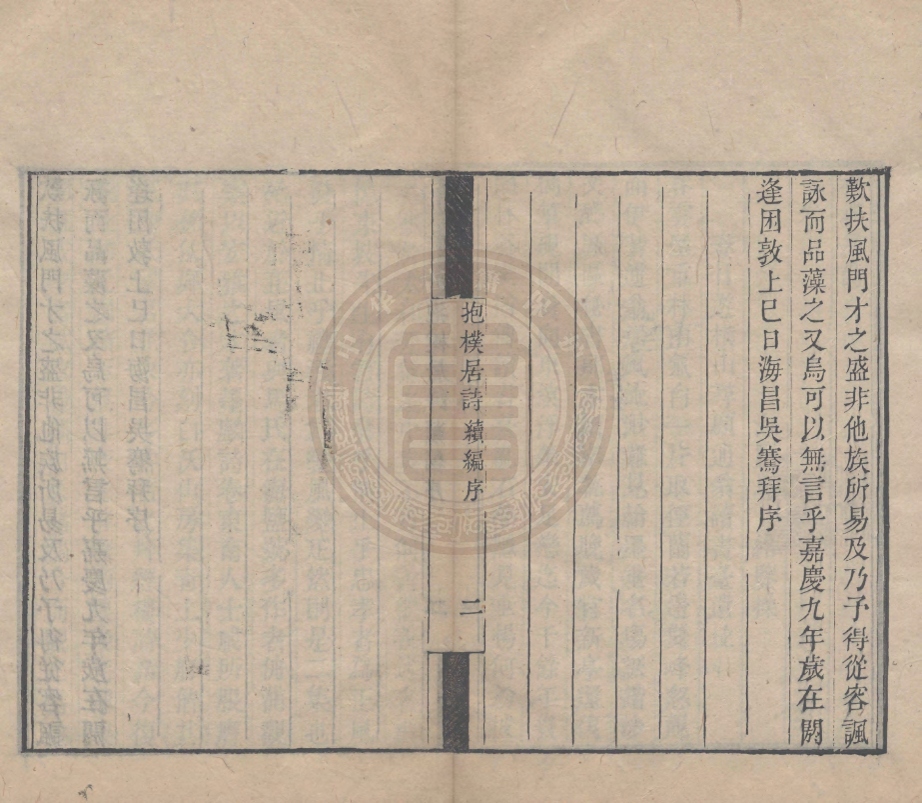 歎扶風門才之盛非他族所易及乃予得從容諷
詠而品藻之又烏可以無言乎嘉慶九年歲在閼
逢困敦上巳日海昌吳騫拜序
抱樸居詩續編序
二